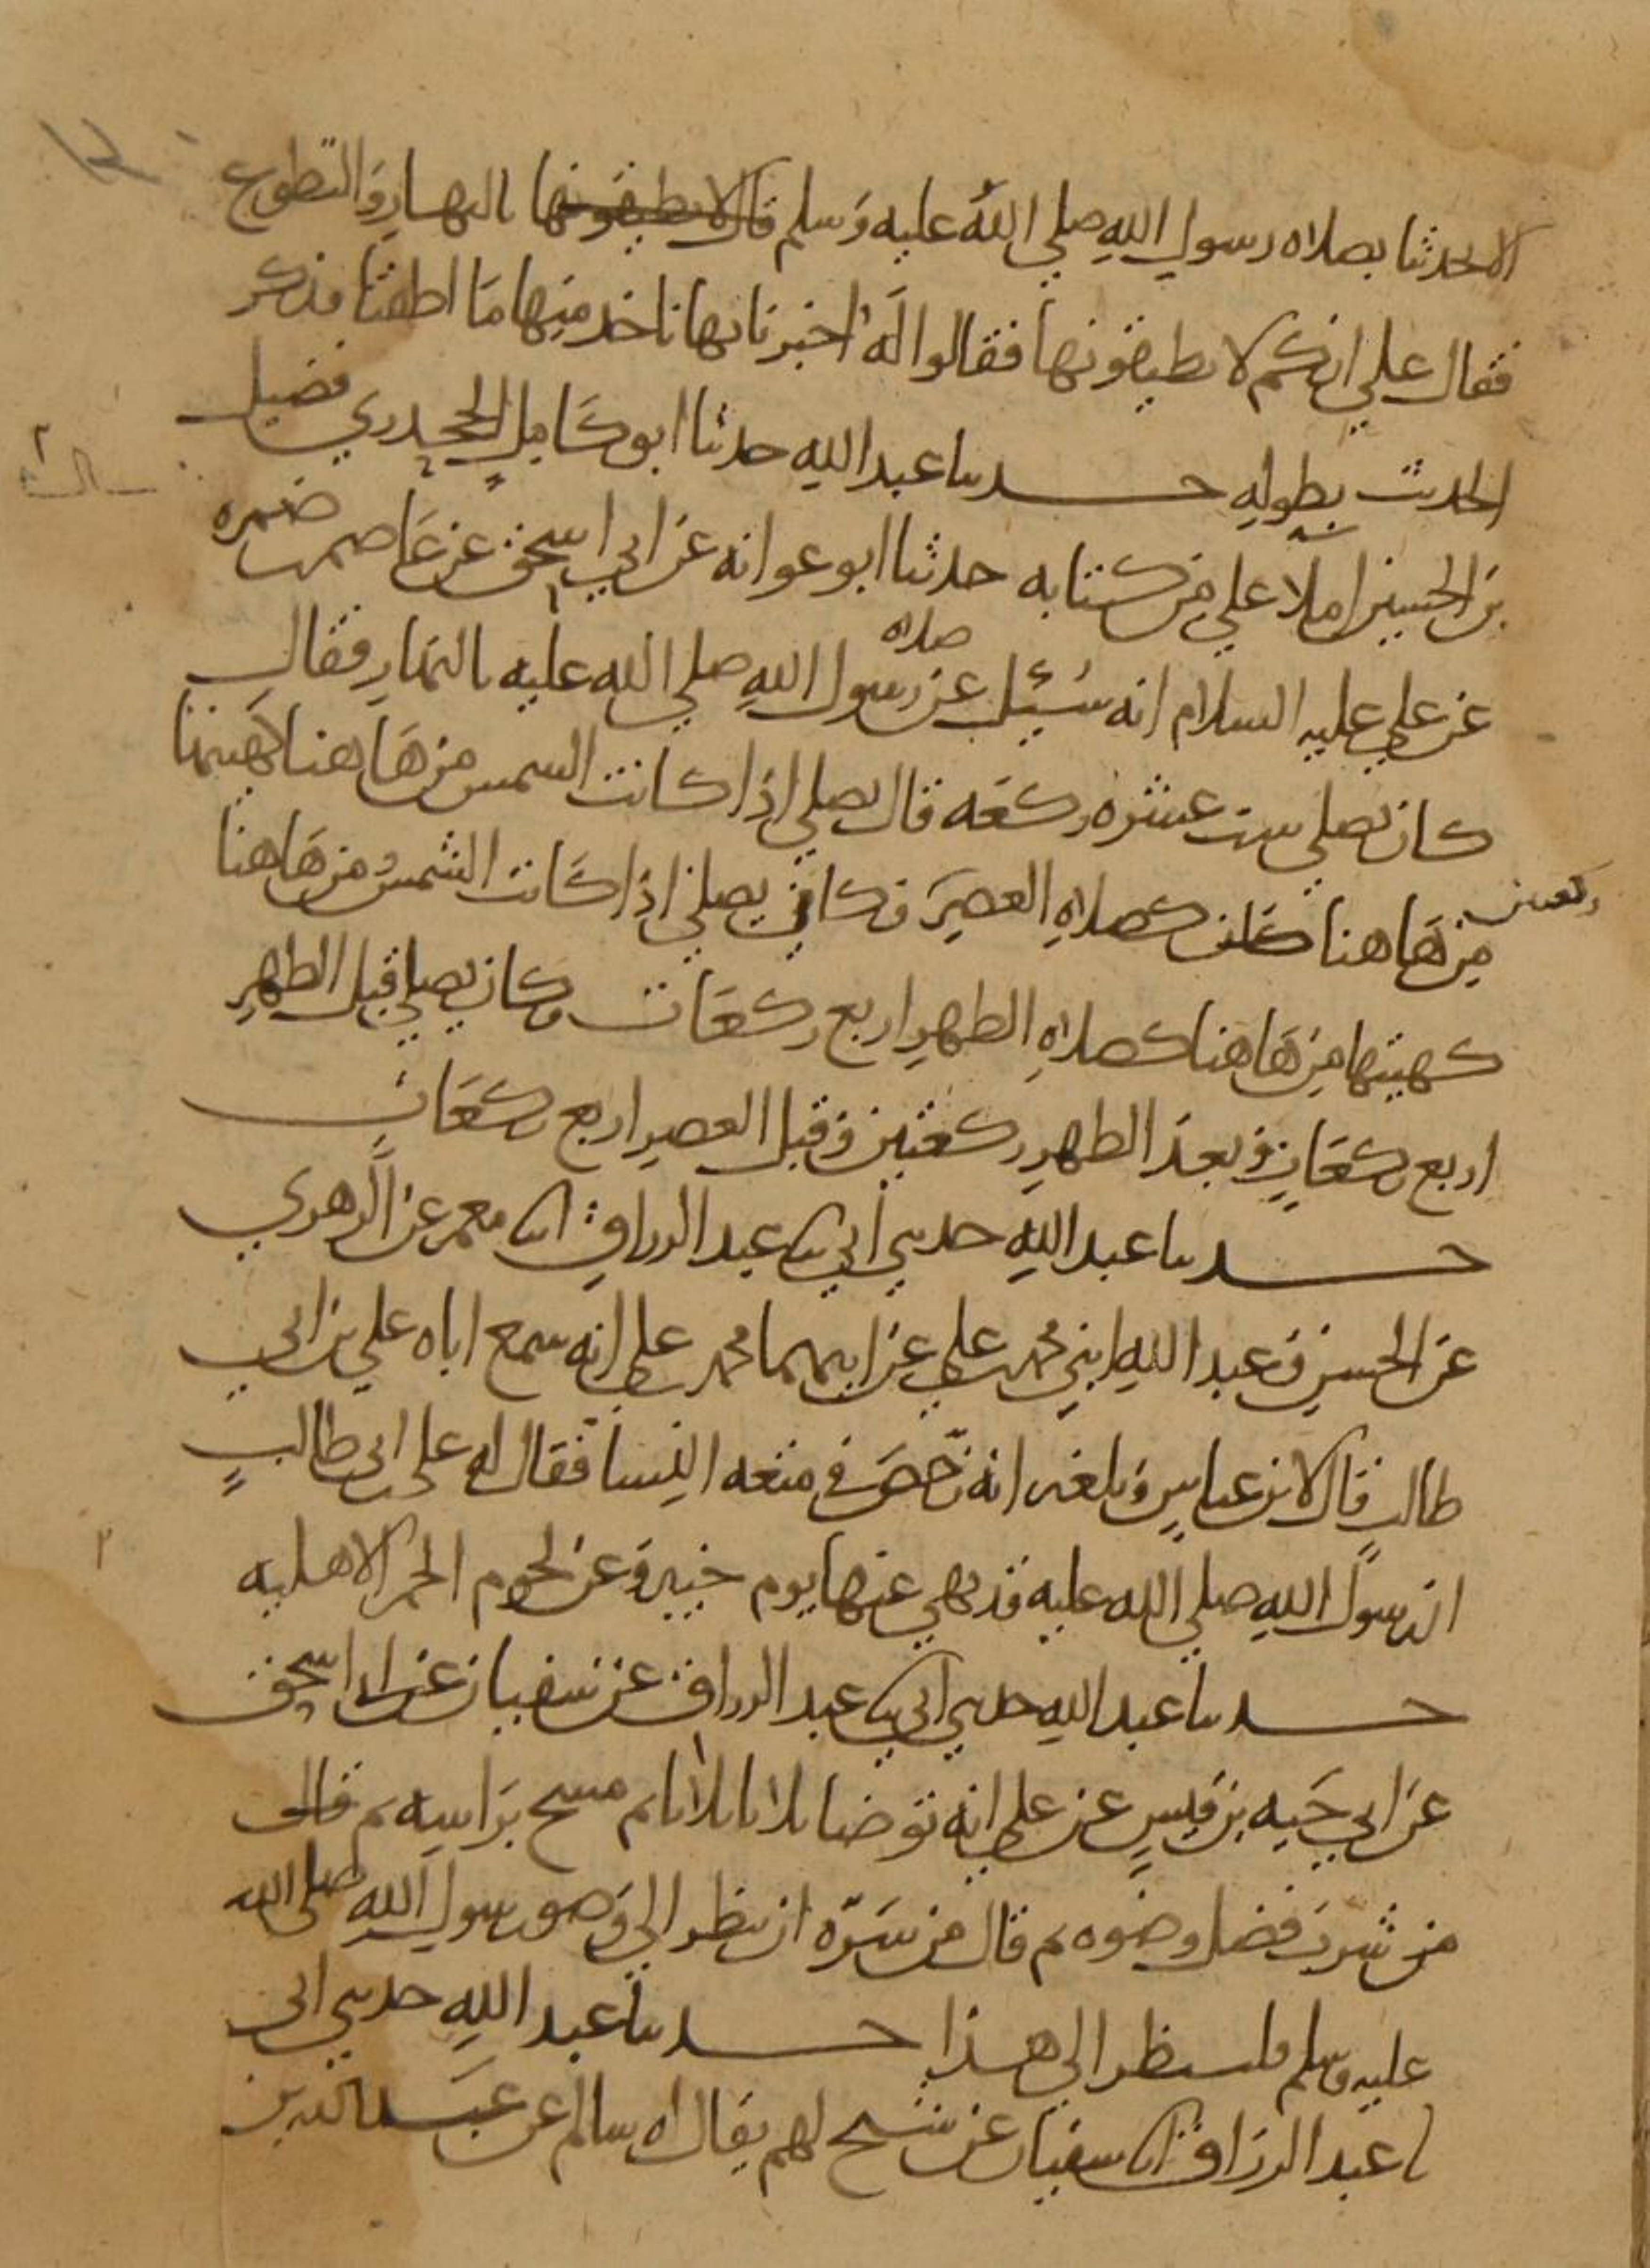 الا تحدثنا بصلاه رسول الله صلي الله عليه وسلم قال لا تطيقونها بالنهار والتطوع
فقال علي انكم لا تطيقونها فقالوا له اخبرنا بها ناخذ منها ما اطقنا فذكر
الحديث بطوله حدثنا عبد الله حدثنا ابو كامل الجحدري فضيل
بن الحسين املا علي من كتابه حدثنا ابو عوانه عن ابي اسحق عن عاصم بن ضمره
عن علي عليه السلام انه سئل عن صلاه رسول الله صلي الله عليه بالنهار فقال
كان يصلي ست عشره ركعه قال يصلي اذا كانت الشمس من هاهنا كهيئتها
من هاهنا ركعتين كصلاه العصر وكان يصلي اذا كانت الشمس من هاهنا
كهيئتها من هاهنا كصلاه الظهر اربع ركعات وكان يصلي قبل الظهر
اربع ركعات وبعد الظهر ركعتين وقبل العصر اربع ركعات
حدثنا عبد الله حدثني ابي ثنا عبد الرزاق انا معمر عن الزهري
عن الحسن وعبد الله ابني محمد بن علي عن ابيهما محمد بن علي انه سمع اباه علي بن ابي
طالب قال لابن عباس وبلغه انه رخص في متعه النسا فقال له علي بن ابي طالب
ان رسول الله صلي الله عليه قد نهي عنها يوم خيبر وعن لحوم الحمر الاهليه
حدثنا عبد الله حدثني ابي ثنا عبد الرزاق عن سفيان عن ابي اسحق
عن ابي حيه بن قيس عن علي انه توضا ثلاثا ثلاثا ثم مسح براسه ثم قال
من شرب فضل وضوه ثم قال من سره ان ينظر الي وضو رسول الله صلي الله
عليه وسلم فلينظر الي هذا حدثنا عبد الله حدثني ابي
ثنا عبد الرزاق انا سفيان عن شيخ لهم يقال له سالم عن عبد الله بن